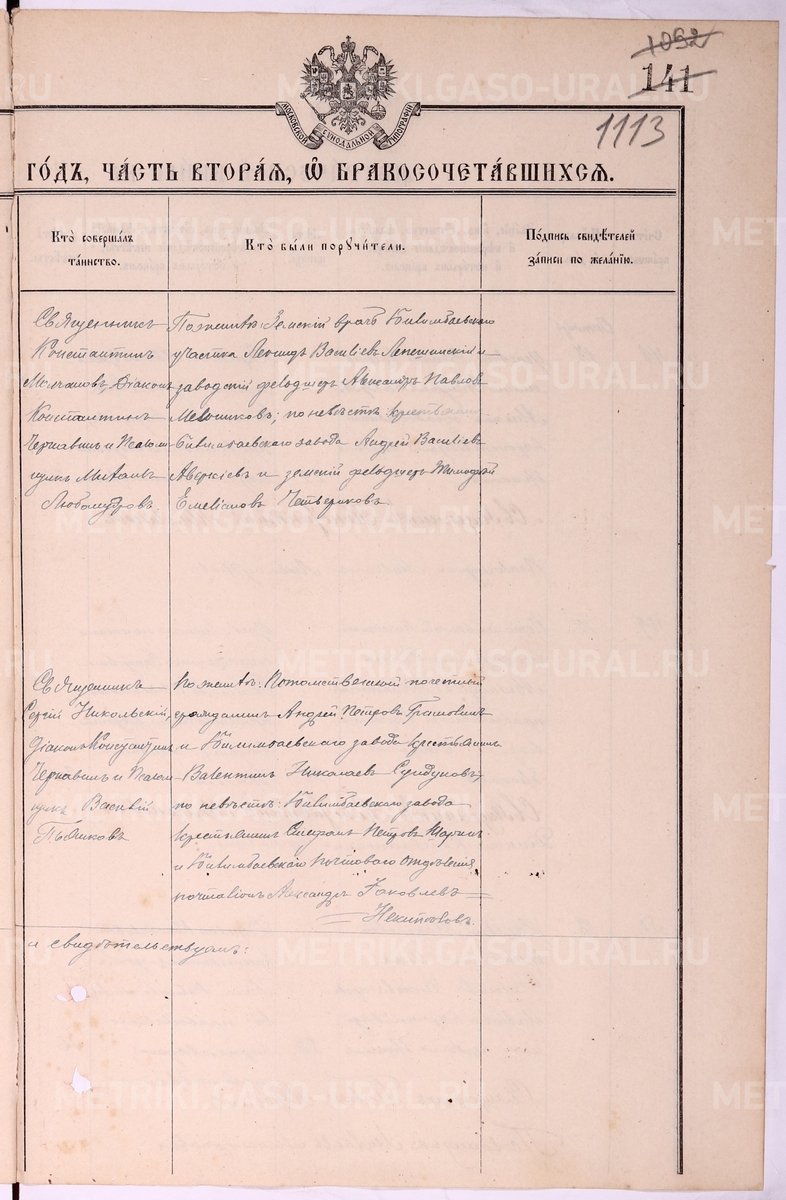 1092
141
1113
МОСКОВСКОЙ СѴНОДАЛЬНОЙ ТИПОГРАФІИ
ГО́ДЪ, ЧА́СТЬ ВТОРА́Я, Ѡ҆ БРАКОСОЧЕТА́ВШИХСЯ.
Кто̀ соверша́лъ
та́инство.
Кто̀ бы́ли порꙋчи́тели.
По́дпись свидѣ́телей
за́писи по жела́нію.
Священникъ
Константинъ
Молчановъ, Діаконъ
Константинъ
Чернавинъ и Псалом
щикъ Михаилъ
Любомудровъ.
По женихѣ: Земскій врачъ Билимбаевскаго
участка Леонидъ Васильевъ Лепешинскій и
заводскій фельдшеръ Александръ Павловъ
Мельниковъ; по невѣстѣ: крестьянинъ
Билимбаевскаго завода Андрей Васильевъ
Аверкіевъ и земскій фельдшеръ Тимофей
Емельяновъ Четвериковъ.
Священникъ
Сергій Никольскій,
Діаконъ Константинъ
Чернавинъ и Псалом
щикъ Василій
Пьянковъ
По женихѣ: Потомственный почетный
гражданинъ Андрей Петровъ
и Билимбаевскаго завода крестьянинъ
Валентинъ Николаевъ
по невѣстѣ: Билимбаевскаго завода
крестьянинъ Стефанъ Петровъ
и Билимбаевскаго почтоваго отдѣленія
почталіонъ Александръ Яковлевъ
и свидѣтельствуемъ:
METRIKI.GASO-URAL.RU